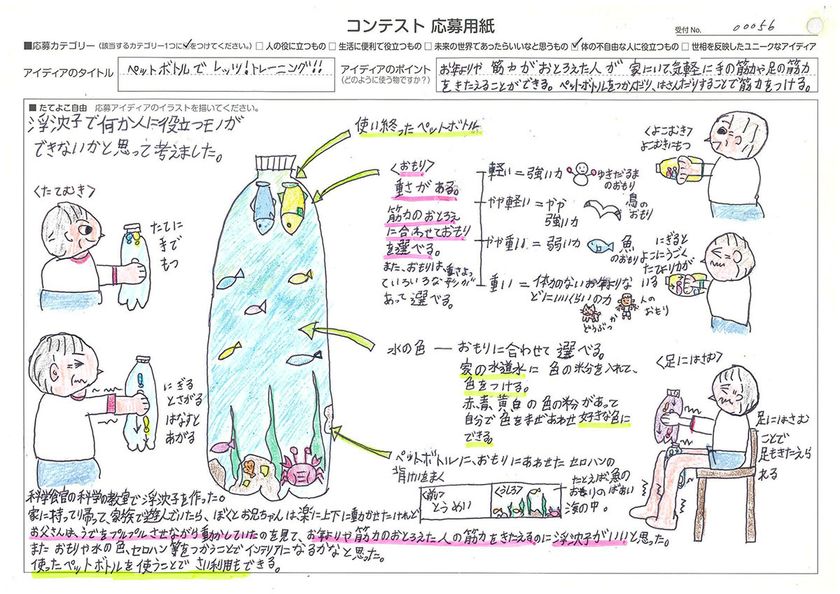 コンテスト 応募用紙
受付No. 00056
■応募カテゴリー（該当するカテゴリー1つに✓をつけてください。）□人の役に立つもの □生活に便利で役立つもの □未来の世界であったらいいなと思うもの ☑体の不自由な人に役立つもの □世相を反映したユニークなアイディア
アイディアのタイトル
ペットボトルで レッツ!トレーニング!!
アイディアのポイント
（どのように使う物ですか？）
お年よりや 筋力がおとろえた人が 家にいて気軽に手の筋力や足の筋力
をきたえることができる。ペットボトルをつかんだり、はさんだりすることで筋力をつける。
■たてよこ自由 応募アイディアのイラストを描いてください。
浮沈子で何か人に役立つモノが
できないかと思って考えました。
使い終ったペットボトル
<たてむき>
たてに
きで
もつ
にぎる
とさがる
はなすと
あがる
<おもり>
重さがある。
筋力のおとろえ
に合わせておもり
を選べる。
また、おもりは、重さによっ
ていろいろな形が
あって 選べる。
軽い=強い力
ゆきだるま
のおもり
やや軽い=やや
強い力
鳥の
おもり
やや重い=弱い力
魚
のおもり
重い=体力のないお年よりな
どにいいくらいの力
どうぶつ
か
人の
おもり
<よこむき>
よこむきにもつ
にぎると
よこにうごく
たてより力が
いる
水の色 ― おもりに合わせて 選べる。
家の水道水に 色の粉を入れて、
色をつける。
赤、青、黄、白の色の粉があって
自分で 色をまぜあわせ 好きな色に
できる。
<足にはさむ>
足にはさむ
ことで
足もきたえら
れる
ペットボトルに、おもりにあわせた セロハンの
背けいをまく
<前>
とうめい
<うしろ>
たとえば 魚の
おもりのばあい
海の中。
科学食官の科学の教室で浮沈子を作った。
家に持って帰って、家族で遊んでいたら、ぼくとお兄ちゃんは、楽に上下に動かせたけれど
お父さんは、うでをプルプルさせながら動かしていたのを見て、お年よりや筋力のおとろえた人の筋力をきたえるのに浮沈子がいいと思った。
また おもりや水の色、セロハン等をつかうことでインテリアになるかなと思った。
使ったペットボトルを使うことで さい利用もできる。